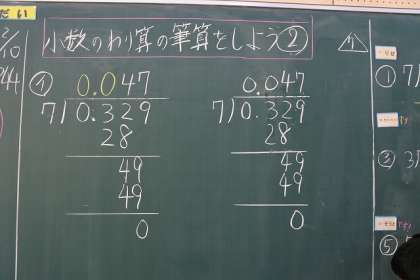 だい
小数のわり算の筆算をしよう②
0.047
7)0.329
28
49
49
0
0.047
7)0.329
28
49
49
0
① 7)
③ 3
⑤